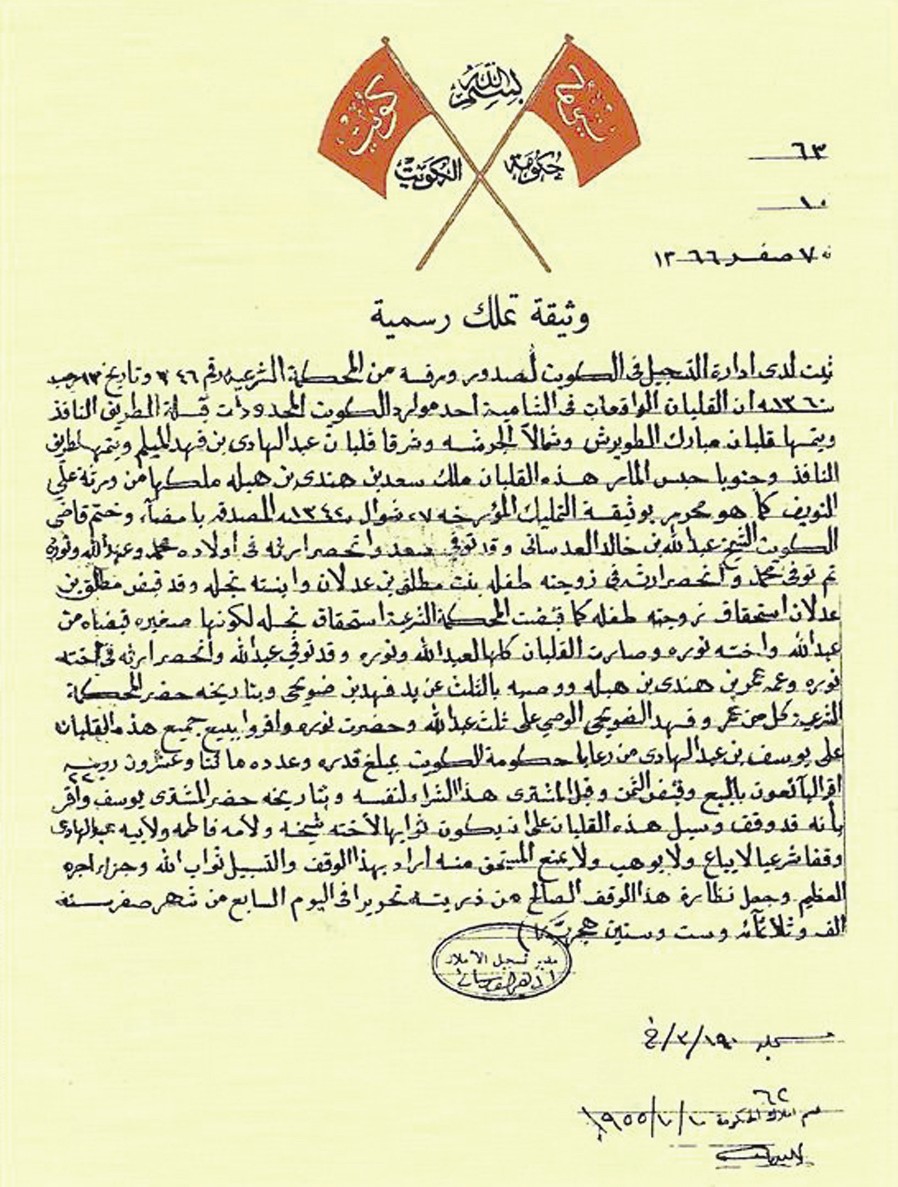 بسم الله
كويت
حكومة
الكويت
٦٣
١٠
٧ صفر ١٣٦٦
وثيقة تملك رسمية
ثبت لدى ادارة التسجيل في الكويت لصدور ورقة من المحكمة الشرعية رقم ٣٤٦ وتاريخ ١٣ رجب
١٣٦٠ه ان القلبان الواقعات في الشامية احد موارد الكويت المحدودات قبلة الطريق النافذ
ويتمها قلبان مبارك الطويرش وشمالاً الحوضه وشرقا قلبان عبدالهادي بن فهد الميلم ويتمها طريق
النافذ وجنوبا حبس الماير هذه القلبان ملك سعد بن هندي بن هبله ملكها من ورثة علي
النويف كما هو محرر بوثيقة التمليك المؤرخه ٢٧ شوال ١٣٤٢ه المصدقه بامضآء وختم قاضي
الكويت الشيخ عبدالله بن خالد العدساني وقد توفي سعد وانحصر ارثه في اولاده محمد وعبدالله ونوره
ثم توفي محمد وانحصر ارثه في زوجته طفله بنت مطلق بن عدلان وابنته نجله وقد قبض مطلق بن
عدلان استحقاق زوجته طفله كما قبضت المحكمة الشرعية استحقاق نجله لكونها صغيره قبضاه من
عبدالله واخته نوره وصارت القلبان كلها لعبدالله ونوره وقد توفي عبدالله وانحصر ارثه في اخته
نوره وعمه عمر بن هندي بن هبله ووصيه بالثلث عن يد فهد بن ضويحي وبتاريخه حضر للمحكمة
الشرعية كل من عمر وفهد الضويحي الوصي على ثلث عبدالله وحضرت نوره واقروا ببيع جميع هذه القلبان
على يوسف بن عبدالهادي من رعايا حكومة الكويت بمبلغ قدره وعدده مائتا وعشرون روبيه
٢٢٠
اقر البآئعون بالبيع وقبض الثمن وقبل المشتري هذا الشراء لنفسه وبتاريخه حضر المشتري يوسف واقر
بأنه قد وقف وسبل هذه القلبان على ان يكون ثوابها لأخته شيخه ولأمه فاطمه ولابيه عبدالهادي
وقفا شرعيا لايباع ولايوهب ولايمنع المستحق منه اراد بهذا الوقف والتسبيل ثواب الله وجزاء اجره
العظيم وجعل نظارة هذا الوقف الصالح من ذريته تحريرا في اليوم السابع من شهر صفر سنة
الف وثلاثمآئه وست وستين هجرية
مدير تسجيل الأملاك
١٩٠/٢/خ
٦٢
قسم املاك الحكومة ١٩٥٥/١/١٠